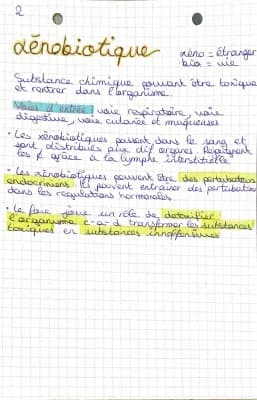 2
xénobiotique
xéno = étranger
bio = vie
Substance chimique pouvant être toxique
et rentrer dans l'organisme.
Voies d'entrée voie respiratoire, voie
digestive, voie cutanée et muqueuses
• Les xénobiotiques passent dans le sang et
sont distribués aux dif organes. Rejoignent
les grâce à la lymphe interstitielle
• Les xénobiotiques peuvent être des perturbateurs
endocriniens. Ils peuvent entraîner des perturbations
dans les régulations hormonales.
• Le foie joue un rôle de detoxifier
l'organisme c-a-d transformer les substances
toxiques en substances innoffensives